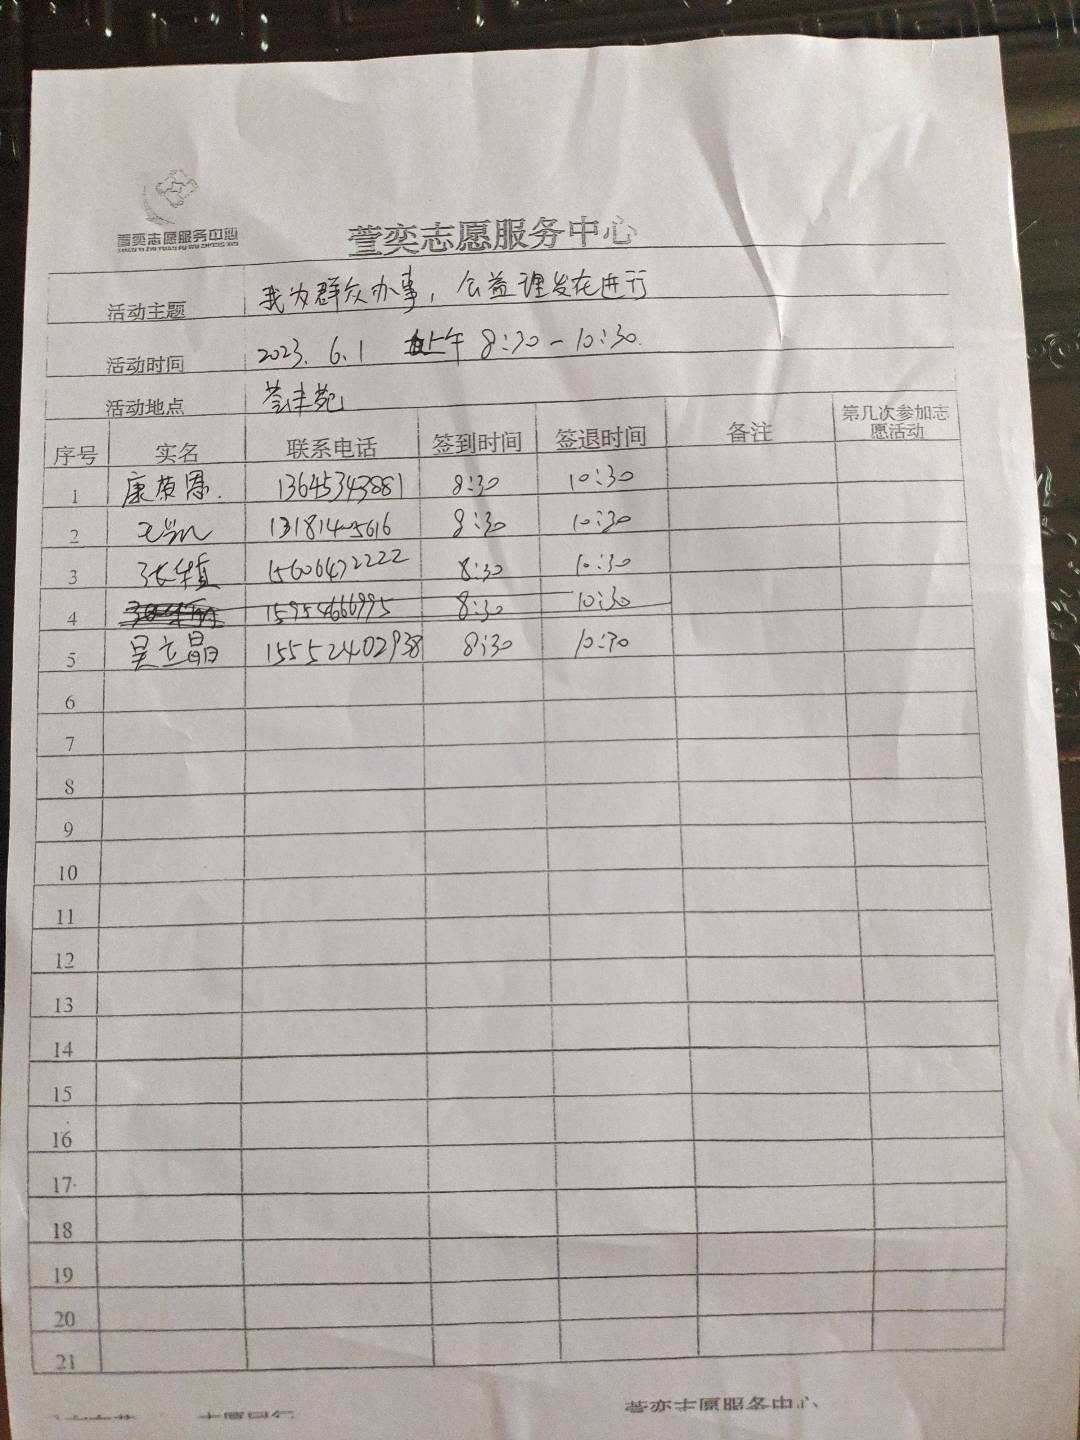 萱奕志愿服务中心
XUAN YI ZHI YUAN FU WU ZHONG XIN
萱奕志愿服务中心
活动主题 我为群众办事，公益理发在进行
活动时间 2023.6.1 上午 8:30-10:30
活动地点
序号 实名 联系电话 签到时间 签退时间 备注 第几次参加志愿活动
1 康荣恩 13645343881 8:30 10:30
2 13181405616 8:30 10:30
3 张稹 15606472222 8:30 10:30
4 15954666995 8:30 10:30
5 吴立晶 15552402938 8:30 10:30
6
7
8
9
10
11
12
13
14
15
16
17
18
19
20
21
志愿同行 萱奕志愿服务中心